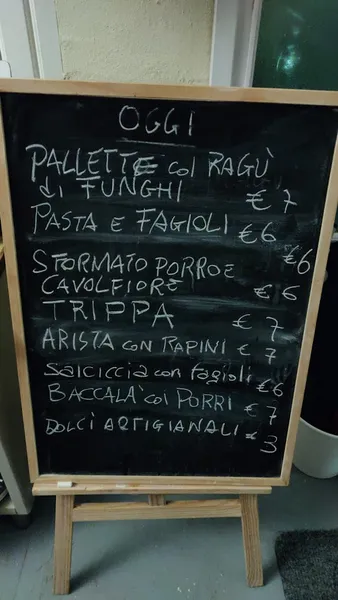 OGGI
PALLETTE col RAGÙ
di FUNGHI € 7
PASTA E FAGIOLI € 6
€6
SFORMATO PORRO E
CAVOLFIORE € 6
TRIPPA € 7
ARISTA con RAPINI € 7
SALCICCIA con fagioli € 6
BACCALA' coi PORRI € 7
DOLCI ARTIGIANALI € 3